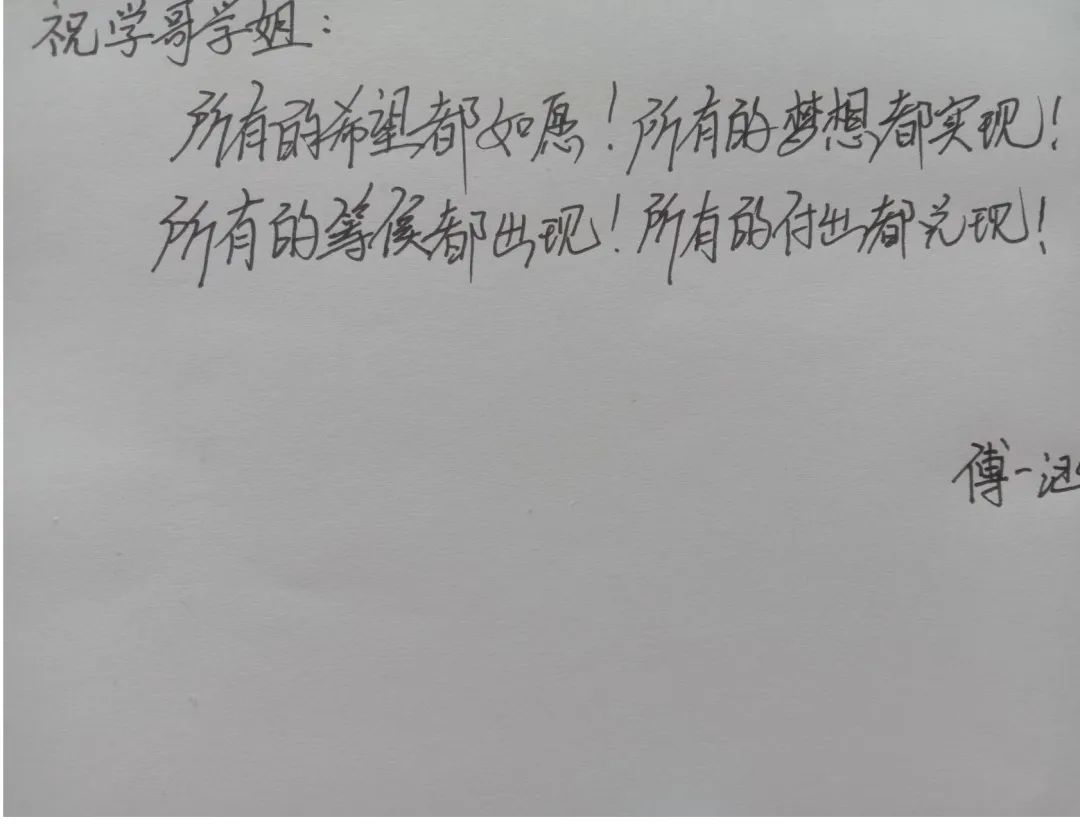 祝学哥学姐：
所有的希望都如愿！所有的梦想都实现！
所有的等候都出现！所有的付出都兑现！
傅一